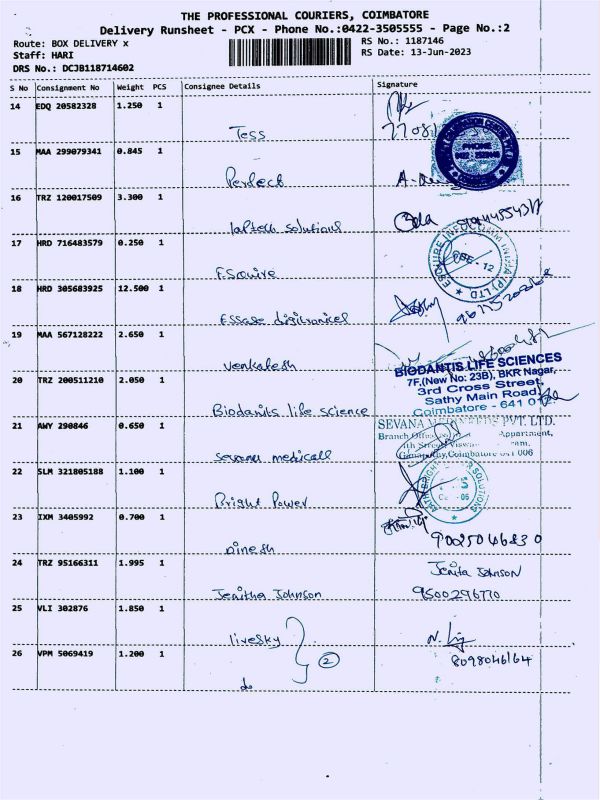 THE PROFESSIONAL COURIERS, COIMBATORE
Delivery Runsheet - PCX - Phone No.:0422-3505555 - Page No.:2
Route: BOX DELIVERY x
RS No.: 1187146
Staff: HARI
RS Date: 13-Jun-2023
DRS No.: DCJB118714602
S No Consignment No Weight PCS Consignee Details Signature
14 EDQ 20582328 1.250 1
Tess
PHONE
15 MAA 299079341 0.845 1
Perfect
16 TRZ 120017509 3.300 1
laptech solutions
17 HRD 716483579 0.250 1
ESquire
ESQUIRE INFOCOMM INDIA (P) LTD
CBE - 12
18 HRD 305683925 12.500 1
Essae digitronices
19 MAA 567128222 2.650 1
Venkatesh
BIODANTIS LIFE SCIENCES
7F,(New No: 23B), BKR Nagar,
3rd Cross Street,
Sathy Main Road,
Coimbatore - 641 012
20 TRZ 200511210 2.050 1
Biodantis life science
21 AWY 290846 0.650 1
SEVANA PVT. LTD.
Branch Appartment,
Street
Ganapathy,Coimbatore 641 006
sevana medicall
22 SLM 321805188 1.100 1
Bright Power
23 IXM 3405992 0.700 1
Dinesh
9025046830
24 TRZ 95166311 1.995 1
Jenita Johnson
Jenitha Johnson
9500296770
25 VLI 302876 1.850 1
livesky
2
26 VPM 5069419 1.200 1
8098046164
do